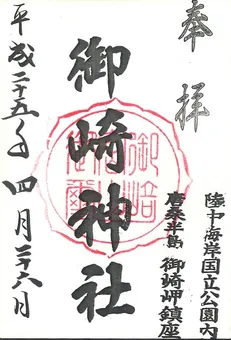 奉拝
陸中海岸国立公園内
唐桑半島 御崎岬鎮座
御崎神社
平成二十五年四月二十六日